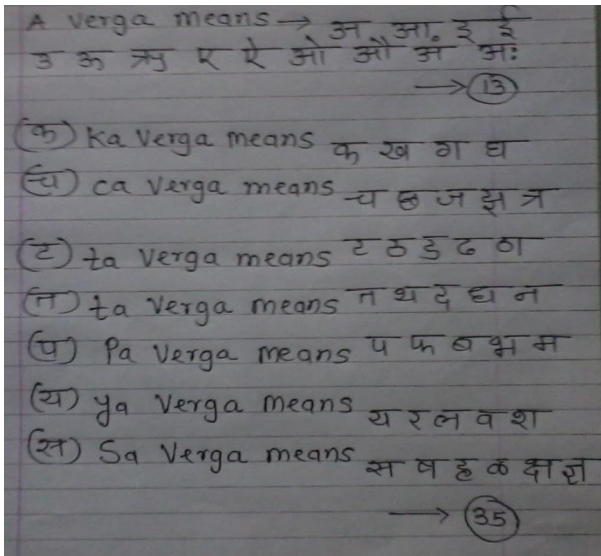 A verga means → अ आ इ ई
उ ऊ ऋ ए ऐ ओ औ अं अः
→ 13
(क) Ka verga means क ख ग घ
(च) ca verga means च छ ज झ त्र
(ट) ta verga means ट ठ ड ढ ठा
(त) ta verga means त थ द ध न
(प) Pa verga means प फ ब भ म
(य) ya verga means य र ल व श
(स) Sa verga means स ष ह ळ क्ष ज्ञ
→ 35